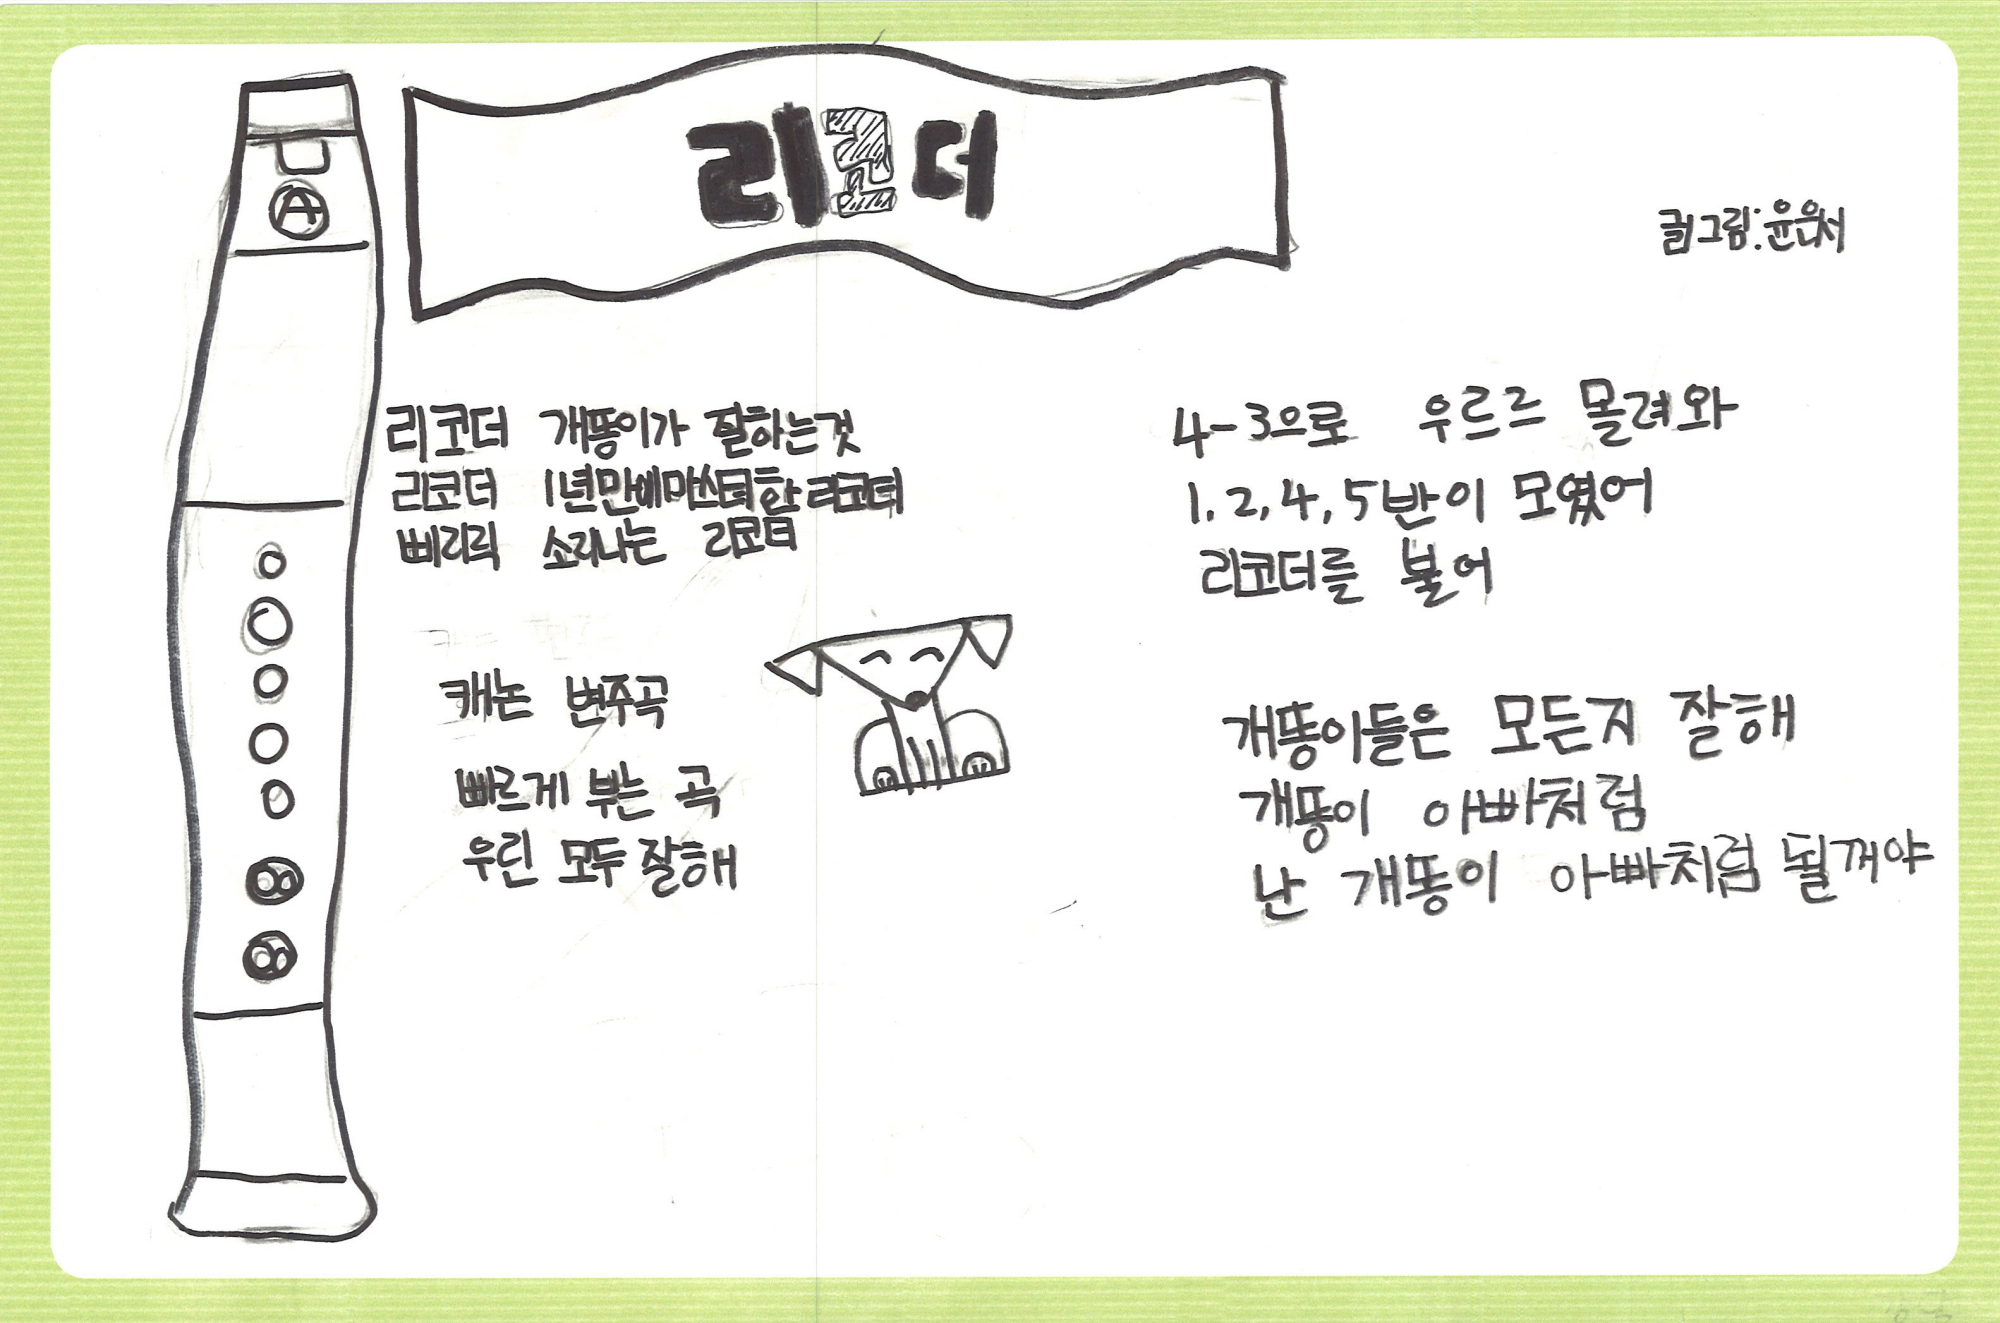 리코더
글그림:윤은서
A
리코더 개똥이가 잘하는것
리코더 1년만에마스터한리코더
삐리릭 소리나는 리코더
캐논 변주곡
빠르게 부는 곡
우린 모두 잘해
4-3으로 우르르 몰려와
1,2,4,5반이 모였어
리코더를 불어
개똥이들은 모든지 잘해
개똥이 아빠처럼
난 개똥이 아빠처럼 될꺼야